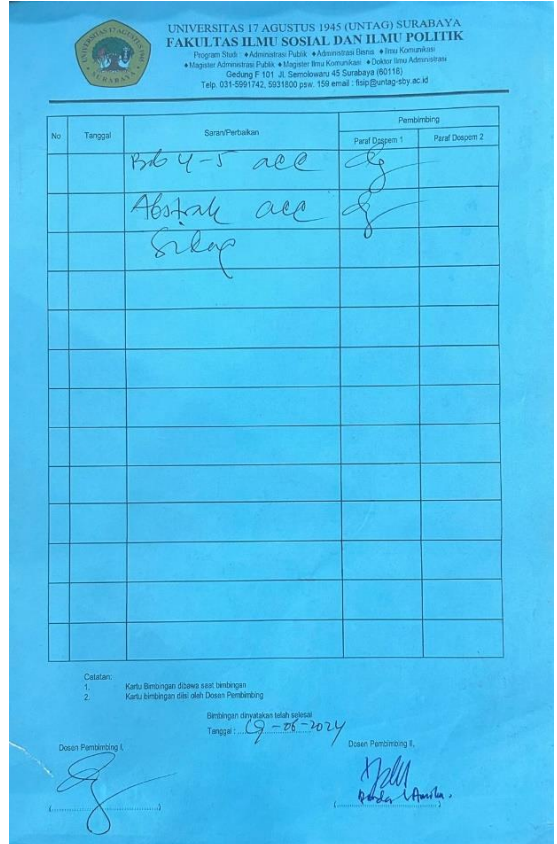 UNIVERSITAS 17 AGUSTUS 1945 (UNTAG) SURABAYA
FAKULTAS ILMU SOSIAL DAN ILMU POLITIK
Program Studi : ♦Administrasi Publik ♦Administrasi Bisnis ♦Ilmu Komunikasi
♦Magister Administrasi Publik ♦Magister Ilmu Komunikasi ♦Doktor Ilmu Administrasi
Gedung F 101 Jl. Semolowaru 45 Surabaya (60118)
Telp. 031-5991742, 5931800 psw. 159 email : fisip@untag-sby.ac.id
No Tanggal Saran/Perbaikan Pembimbing
Paraf Dospem 1 Paraf Dospem 2
Bab 4-5 acc
Abstrak acc
Catatan:
1. Kartu Bimbingan dibawa saat bimbingan
2. Kartu bimbingan diisi oleh Dosen Pembimbing
Bimbingan dinyatakan telah selesai
Tanggal : 19-06-2024
Dosen Pembimbing I, Dosen Pembimbing II,